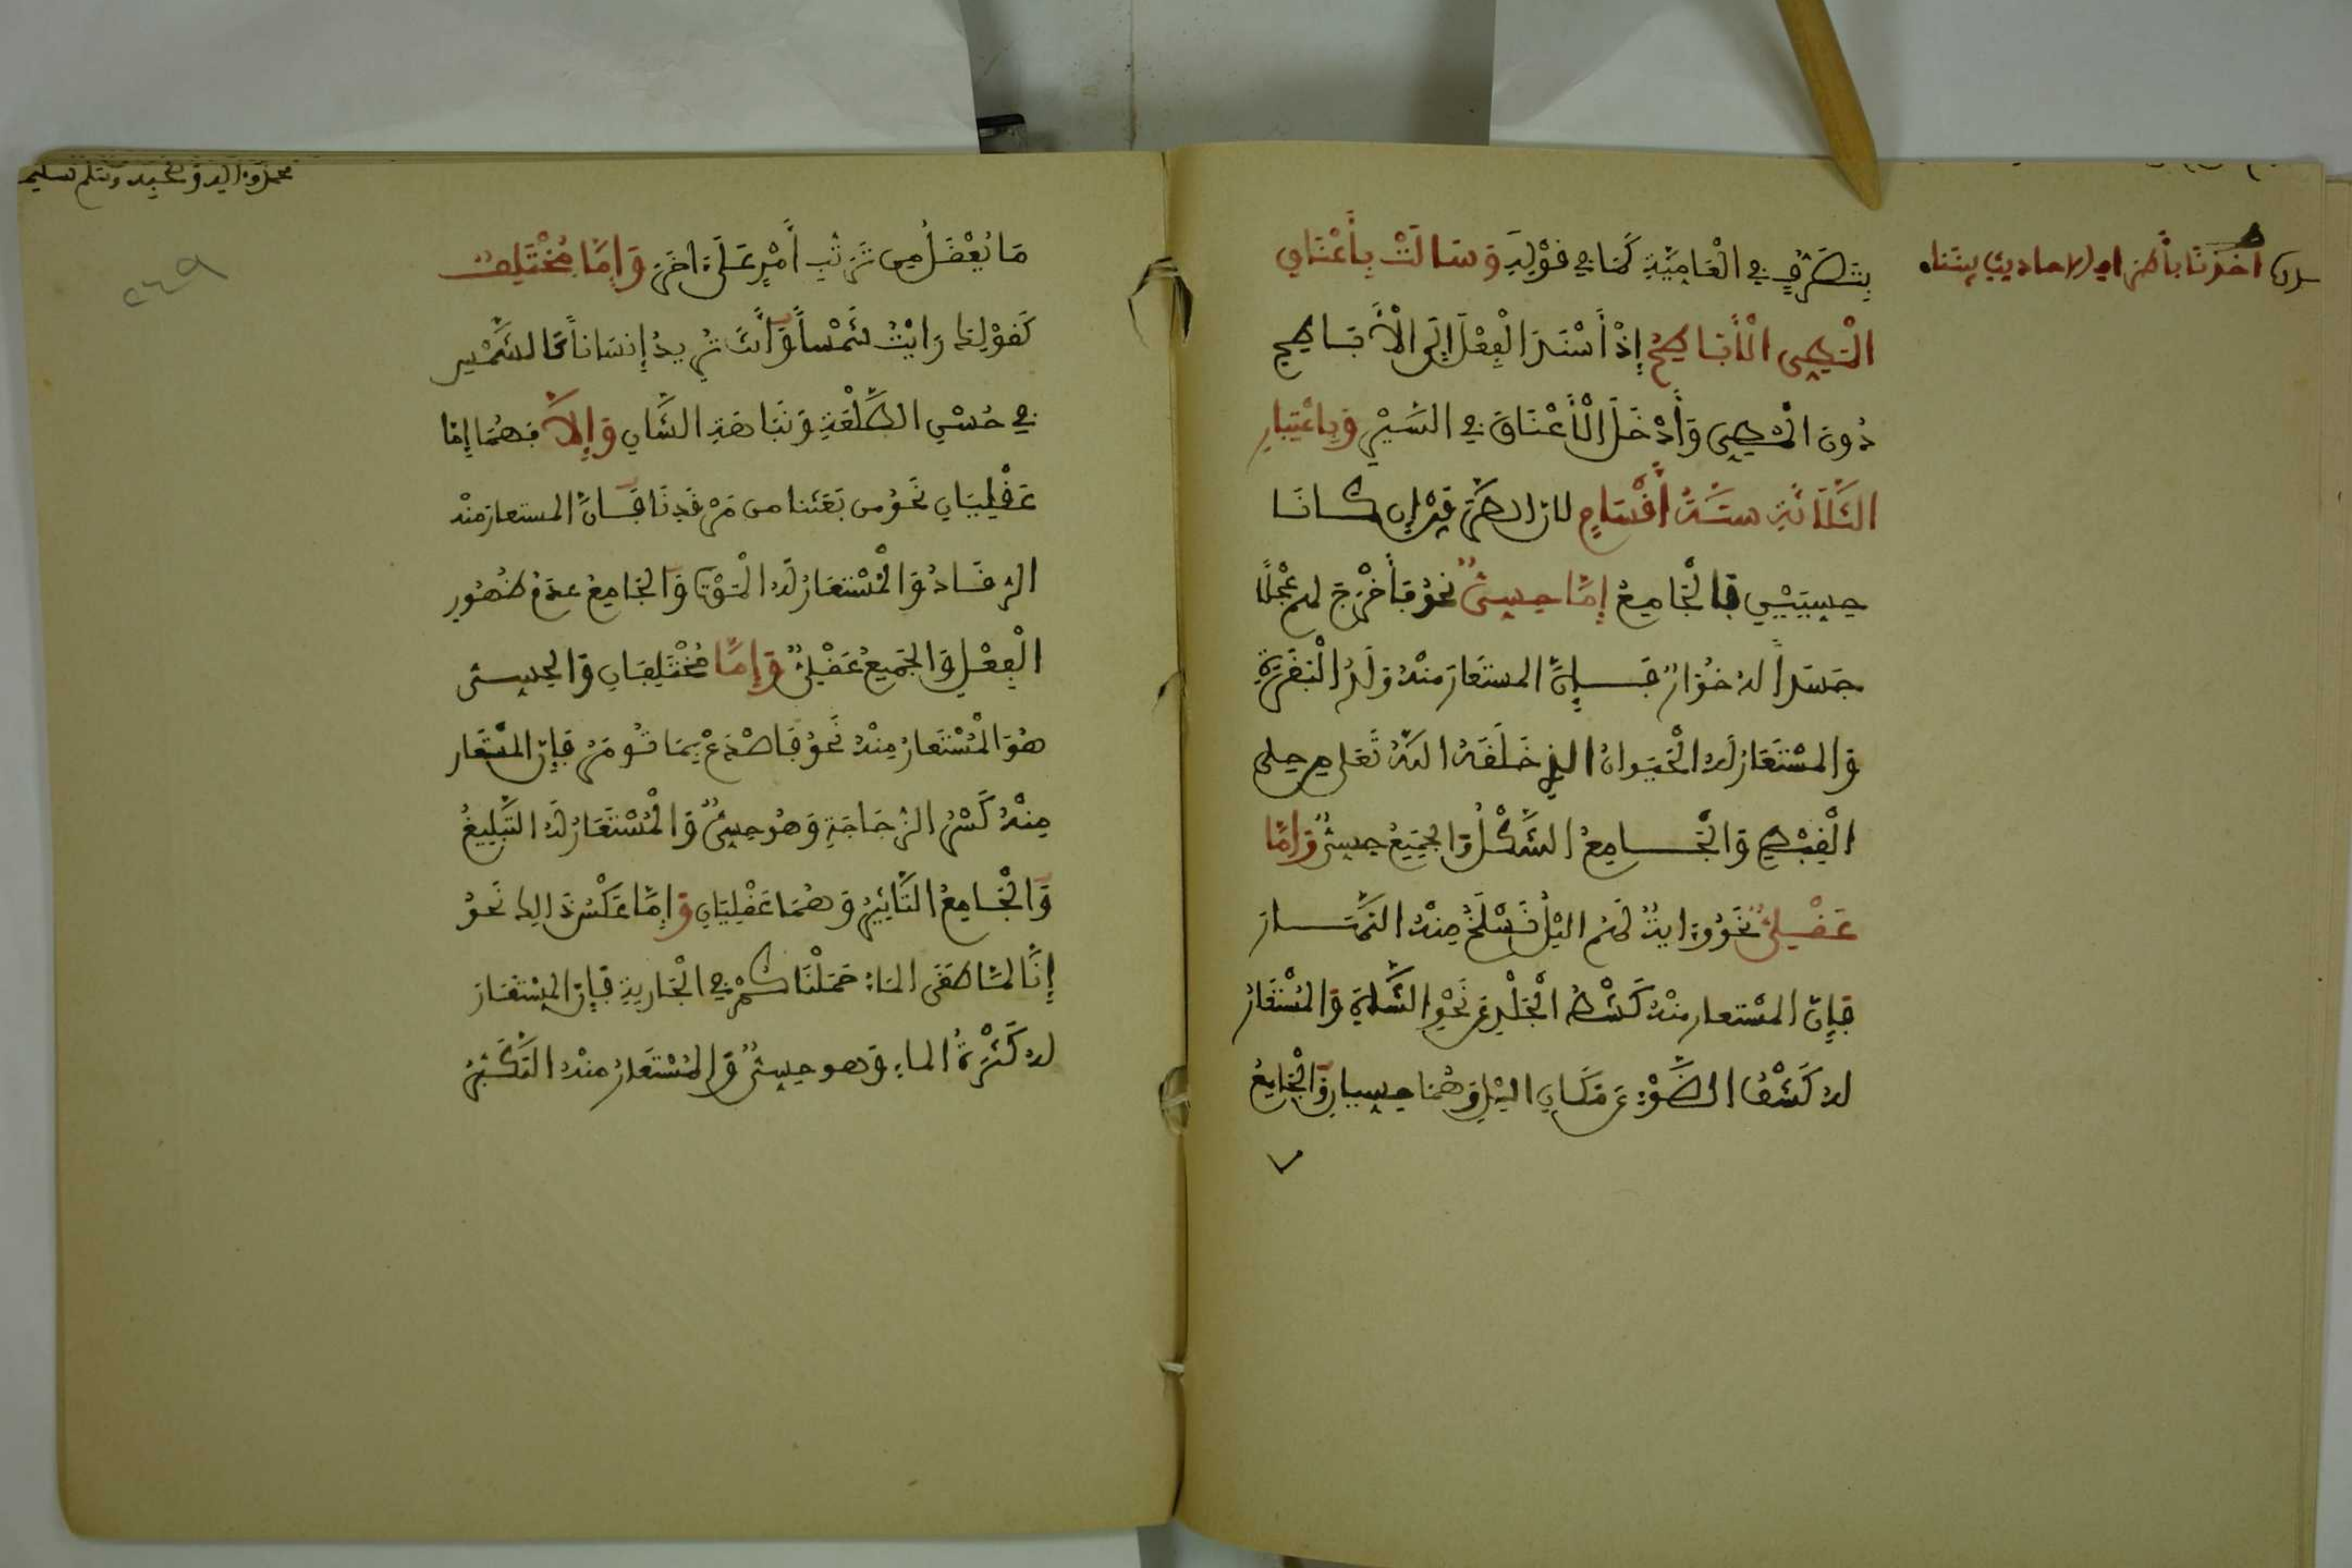 بِتَصَرُّفٍ في الْعَامِّيَّةِ كَمَا في قَوْلِهِ وَسَالَتْ بِأَعْنَاقِ
الْمَطِيِّ الْأَبَاطِحُ إِذْ أَسْنَدَ الْفِعْلَ إِلَى الْأَبَاطِحِ
دُونَ الْمَطِيِّ وَأَدْخَلَ الْأَعْنَاقَ في السَّيْرِ وَبِاعْتِبَارِ
الثَّلَاثَةِ سِتَّةُ أَقْسَامٍ لان الطرفين إن كانا
حِسِّيَّيْنِ فَالْجَامِعُ إِمَّا حِسِّيٌّ نَحْوُ فَأَخْرَجَ لهم عِجْلًا
جَسَداً له خُوَارٌ فَإِنَّ المستَعَارَ مِنْهُ وَلَدُ الْبَقَرَةِ
وَالمسْتَعَارُ لَهُ الْحَيَوانُ الذي خَلَقَهُ اللهُ تَعَلى من حلى
الْقِبْطِ وَالْجَامِعُ الشَّكْلُ وَالجَمِيعُ حِسِّيٌّ وَإِمَّا
عَقْلِيٌّ نَحْوُ وَءايَةٌ لَهُمُ اليْلُ نَسْلَخُ مِنْهُ النَّهَارَ
فَإِنَّ المسْتعار مِنْهُ كَشْطُ الْجِلْدِ عَن نَحْوِ الشَّاةِ وَالمُسْتَعَارُ
لَهُ كَشْفُ الضَّوْءِ عَن مَكَانِ اليْلِ وَهُمَا حِسِّيانِ وَالْجَامِعُ
اخذنا بأطراف الاحاديث بيننا
مَا يُعْقَلُ مِن تَرَتُّبِ أَمْرٍ عَلَى ءاخَرَ وَإِمَّا مُخْتَلِفٌ
كَقَوْلِكَ رَأَيْتُ شَمْساً وَأَنتَ تُرِيدُ إِنسَاناً كَالشَّمْسِ
في حُسْنِ الطَّلْعَةِ وَنَبَاهَةِ الشَّانِ وَإِلَّا فَهُمَا إِمَّا
عَقْلِيَّانِ نَحْوُ من بَعَثَنا من مَرْقَدِنَا فَإنَّ المستعارَ مِنْهُ
الرُّقَادُ وَالْمُسْتَعَارُ لَهُ الْمَوْتُ وَالجَامِعُ عَدَمُ ظُهُورِ
الْفِعْلِ وَالجَمِيعُ عَقْلِيٌّ وَإِمَّا مُخْتَلِفَانِ وَالحِسِّيُّ
هُوَ الْمُسْتَعَارُ مِنْهُ نَحْوُ فَاصْدَعْ بِمَا تُومَرُ فَإِنَّ المسْتَعَار
مِنْهُ كَسْرُ الزُّجَاجَةِ وَهُوَ حِسِّيٌّ وَالْمُسْتَعَارُ لَهُ التَّبْلِيغُ
وَالْجَامِعُ التَّاثِيرُ وَهُمَا عَقْلِيَّانِ وَإِمَّا عَكْسُ ذَالِكَ نَحْوُ
إِنَّا لَمَّا طَغَى المَاءُ حَمَلْنَاكُمْ في الْجَارِيَةِ فَإِنَّ المسْتَعَارَ
لَهُ كَثْرَةُ الماءِ وَهو حِسِّيٌّ وَالمُسْتَعَارُ منهُ التَّكَبُّرُ